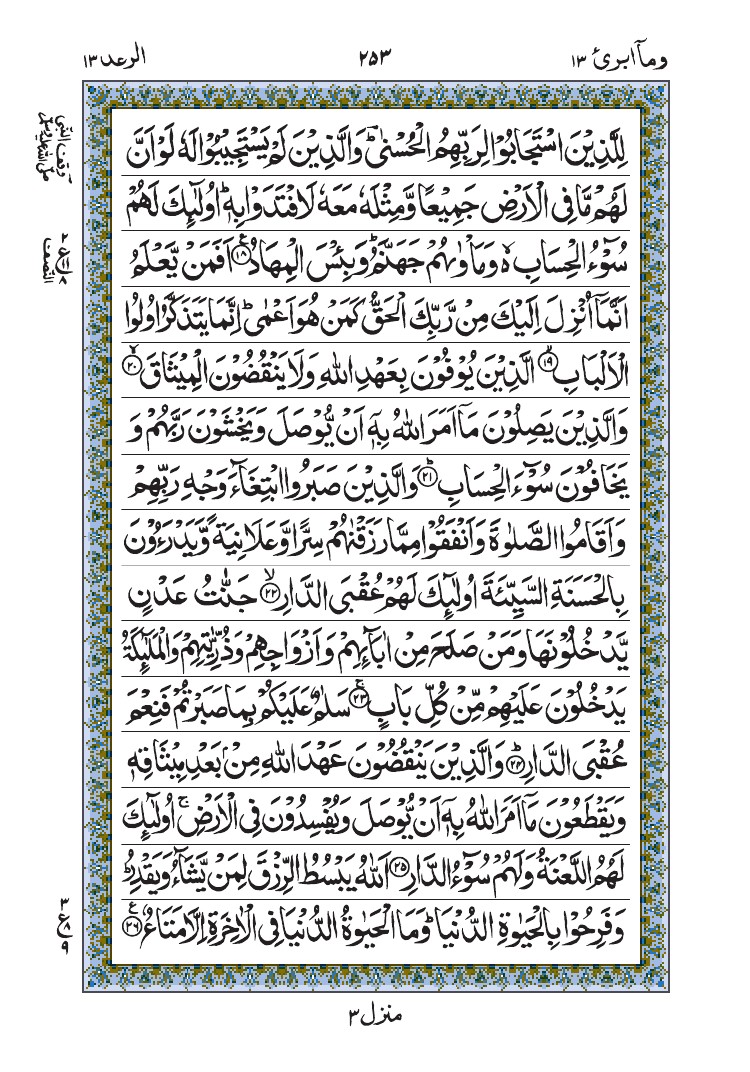 وماۤ ابرئ ١٣
٢٥٣
الرعد ١٣
لِلَّذِيْنَ اسْتَجَابُوْا لِرَبِّهِمُ الْحُسْنٰىؔؕ وَالَّذِيْنَ لَمْ يَسْتَجِيْبُوْا لَهٗ لَوْ اَنَّ
لَهُمْ مَّا فِى الْاَرْضِ جَمِيْعًا وَّمِثْلَهٗ مَعَهٗ لَافْتَدَوْا بِهٖؕ اُولٰٓئِكَ لَهُمْ
سُوْٓءُ الْحِسَابِ ۙ وَمَاْوٰىهُمْ جَهَنَّمُؕ وَبِئْسَ الْمِهَادُ ۧ۝۱۸ اَفَمَنْ يَّعْلَمُ
اَنَّمَآ اُنْزِلَ اِلَيْكَ مِنْ رَّبِّكَ الْحَقُّ كَمَنْ هُوَ اَعْمٰىؕ اِنَّمَا يَتَذَكَّرُ اُولُوا
الْاَلْبَابِ ۙ۝۱۹ الَّذِيْنَ يُوْفُوْنَ بِعَهْدِ اللّٰهِ وَلَا يَنْقُضُوْنَ الْمِيْثَاقَ ۙ۝۲۰
وَالَّذِيْنَ يَصِلُوْنَ مَآ اَمَرَ اللّٰهُ بِهٖٓ اَنْ يُّوْصَلَ وَيَخْشَوْنَ رَبَّهُمْ وَ
يَخَافُوْنَ سُوْٓءَ الْحِسَابِ ؕ۝۲۱ وَالَّذِيْنَ صَبَرُوا ابْتِغَآءَ وَجْهِ رَبِّهِمْ
وَاَقَامُوا الصَّلٰوةَ وَاَنْفَقُوْا مِمَّا رَزَقْنٰهُمْ سِرًّا وَّعَلَانِيَةً وَّيَدْرَءُوْنَ
بِالْحَسَنَةِ السَّيِّئَةَ اُولٰٓئِكَ لَهُمْ عُقْبَى الدَّارِ ۙ۝۲۲ جَنّٰتُ عَدْنٍ
يَّدْخُلُوْنَهَا وَمَنْ صَلَحَ مِنْ اٰبَآئِهِمْ وَاَزْوَاجِهِمْ وَذُرِّيّٰتِهِمْ وَالْمَلٰٓئِكَةُ
يَدْخُلُوْنَ عَلَيْهِمْ مِّنْ كُلِّ بَابٍ ۚ۝۲۳ سَلٰمٌ عَلَيْكُمْ بِمَا صَبَرْتُمْ فَنِعْمَ
عُقْبَى الدَّارِ ؕ۝۲۴ وَالَّذِيْنَ يَنْقُضُوْنَ عَهْدَ اللّٰهِ مِنْۢ بَعْدِ مِيْثَاقِهٖ
وَيَقْطَعُوْنَ مَآ اَمَرَ اللّٰهُ بِهٖٓ اَنْ يُّوْصَلَ وَيُفْسِدُوْنَ فِى الْاَرْضِ ۙ اُولٰٓئِكَ
لَهُمُ اللَّعْنَةُ وَلَهُمْ سُوْٓءُ الدَّارِ ۝۲۵ اَللّٰهُ يَبْسُطُ الرِّزْقَ لِمَنْ يَّشَآءُ وَيَقْدِرُؕ
وَفَرِحُوْا بِالْحَيٰوةِ الدُّنْيَاؕ وَمَا الْحَيٰوةُ الدُّنْيَا فِى الْاٰخِرَةِ اِلَّا مَتَاعٌ ۧ۝۲۶
وقف النبی صلى الله عليه وسلم
النصف
منزل ٣